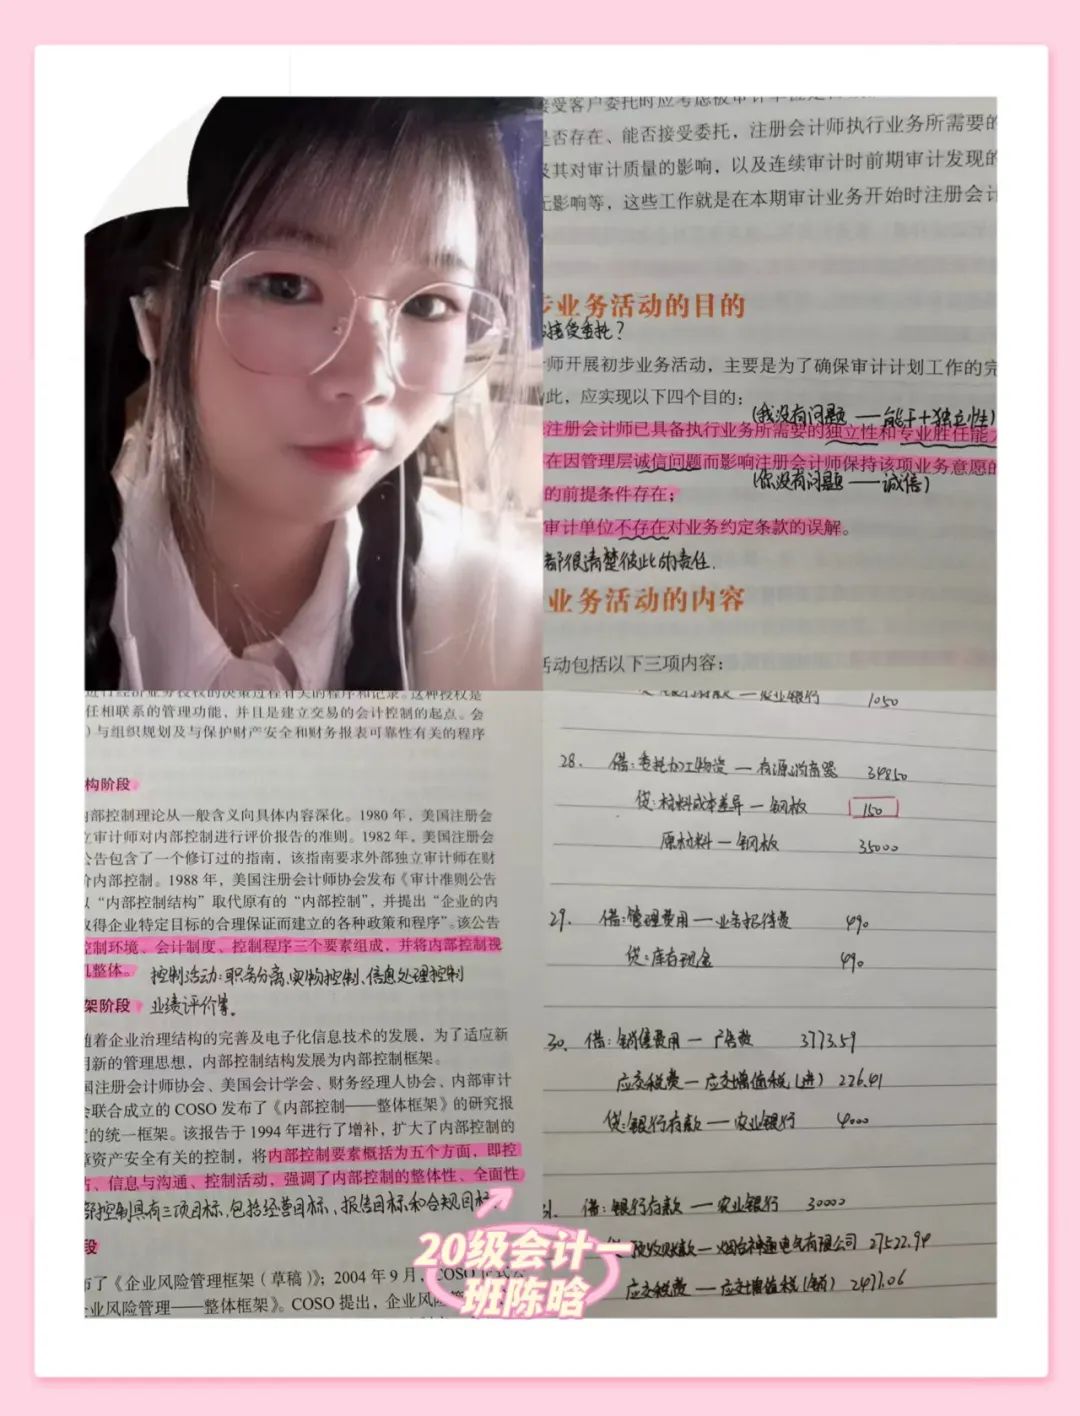 接受客户委托时应考虑被审计单位是
是否存在、能否接受委托，注册会计师执行业务所需要的
及其对审计质量的影响，以及连续审计时前期审计发现的
无影响等，这些工作就是在本期审计业务开始时注册会计
步业务活动的目的
接受委托？
师开展初步业务活动，主要是为了确保审计计划工作的完
此，应实现以下四个目的：
(我没有问题——能干+独立性)
注册会计师已具备执行业务所需要的独立性和专业胜任能力
在因管理层诚信问题而影响注册会计师保持该项业务意愿的
(你没有问题——诚信)
的前提条件存在；
审计单位不存在对业务约定条款的误解。
都很清楚彼此的责任.
业务活动的内容
活动包括以下三项内容：
进行经济业务授权的决策过程有关的程序和记录。这种授权是
任相联系的管理功能，并且是建立交易的会计控制的起点。会
)与组织规划及与保护财产安全和财务报表可靠性有关的程序
构阶段
内部控制理论从一般含义向具体内容深化。1980 年，美国注册会
立审计师对内部控制进行评价报告的准则。1982 年，美国注册会
公告包含了一个修订过的指南，该指南要求外部独立审计师在财
价内部控制。1988 年，美国注册会计师协会发布《审计准则公告
以“内部控制结构”取代原有的“内部控制”，并提出“企业的内
取得企业特定目标的合理保证而建立的各种政策和程序”。该公告
控制环境、会计制度、控制程序三个要素组成，并将内部控制视
机整体。 控制活动：职务分离、实物控制、信息处理控制
架阶段 业绩评价等。
随着企业治理结构的完善及电子化信息技术的发展，为了适应新
用新的管理思想，内部控制结构发展为内部控制框架。
国注册会计师协会、美国会计学会、财务经理人协会、内部审计
会联合成立的 COSO 发布了《内部控制——整体框架》的研究报
定的统一框架。该报告于 1994 年进行了增补，扩大了内部控制的
障资产安全有关的控制，将内部控制要素概括为五个方面，即控
估、信息与沟通、控制活动，强调了内部控制的整体性、全面性
部控制具有三项目标，包括经营目标、报告目标和合规目标.
段
布了《企业风险管理框架（草稿）》；2004 年 9 月，COSO 正式公
企业风险管理——整体框架》。COSO 提出，企业风险管
贷：银行存款—农业银行 1050
28. 借：委托加工物资—有源消商器 34850
贷：材料成本差异—钢板 150
原材料—钢板 35000
29. 借：管理费用—业务招待费 490
贷：库存现金 490
30. 借：销售费用—广告费 3773.59
应交税费—应交增值税(进) 226.41
贷：银行存款—农业银行 4000
31. 借：银行存款—农业银行 30000
贷：预收账款—烟台神通电气有限公司 27522.94
应交税费—应交增值税(销) 2477.06
20级会计一
班陈晗